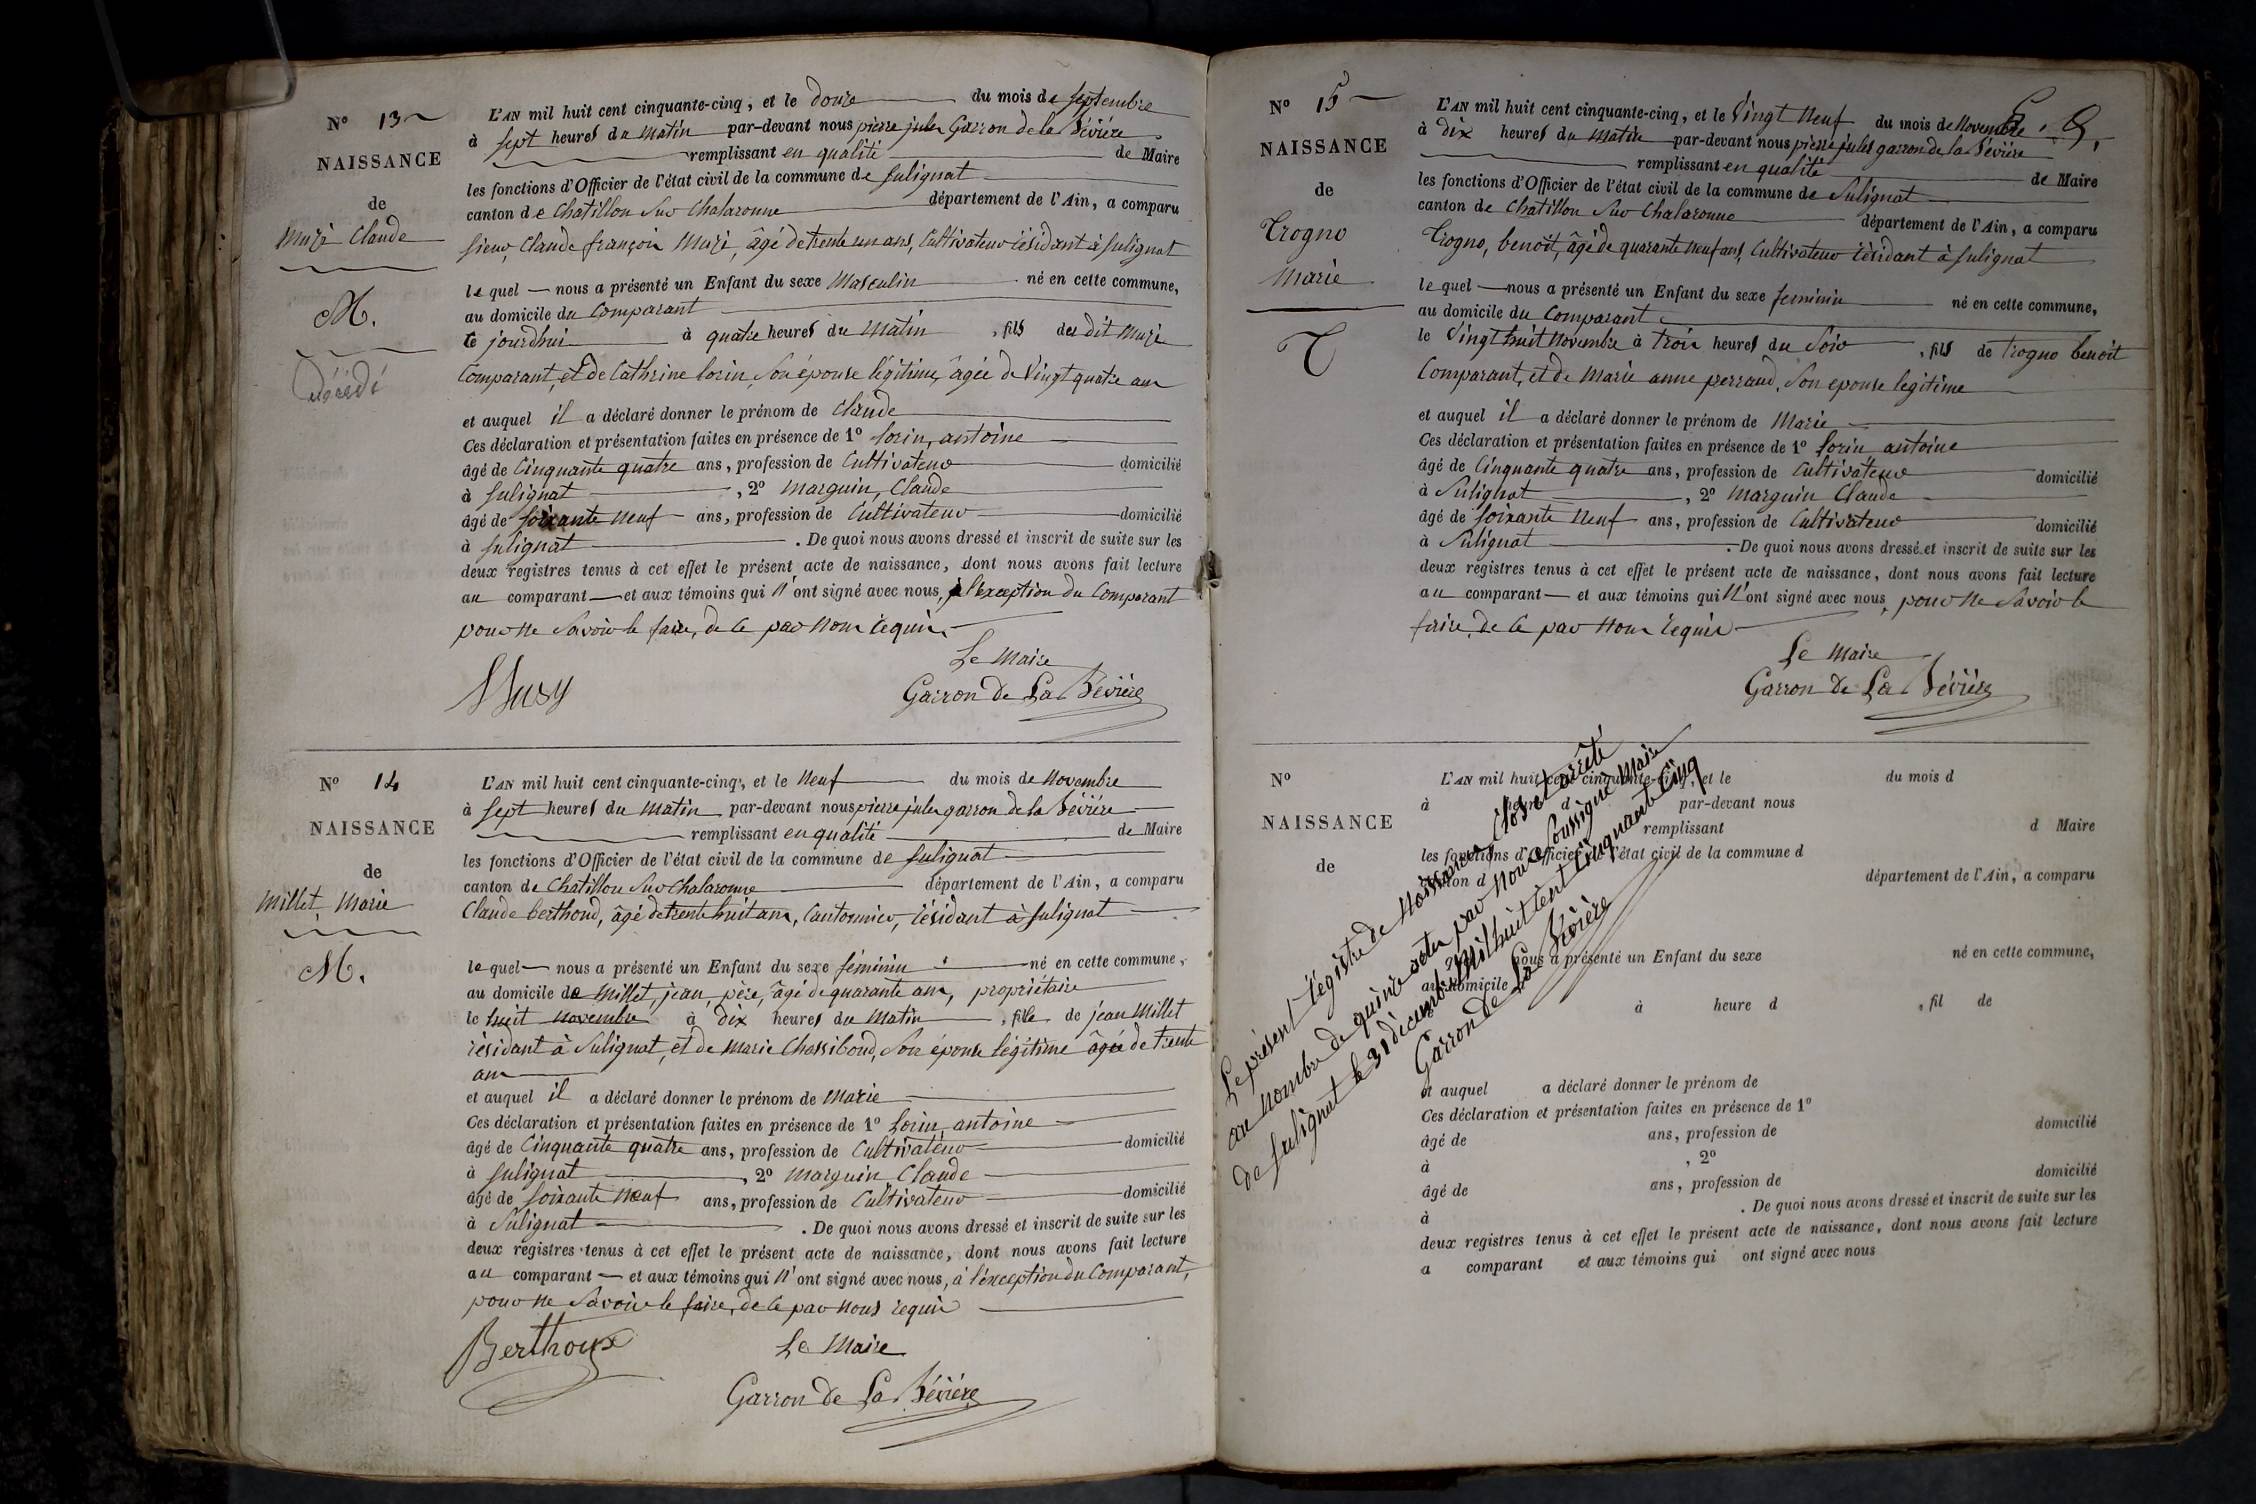 N° 13
NAISSANCE
de
Muzi Claude
M.
décédé
L'AN mil huit cent cinquante-cinq, et le douze du mois de septembre
à sept heures du matin par-devant nous pierre jules Garron de la Bévière
remplissant en qualité de Maire
les fonctions d'Officier de l'état civil de la commune de Sulignat
canton de Chatillon sur Chalaronne département de l'Ain, a comparu
sieur, Claude françois Muzi, âgé de trente un ans, Cultivateur résidant à Sulignat
lequel nous a présenté un Enfant du sexe Masculin né en cette commune,
au domicile du Comparant
ce jourd'hui à quatre heures du matin, fils du dit Muzi
Comparant, et de Cathrine lorin, son épouse légitime, âgée de Vingt quatre ans
et auquel il a déclaré donner le prénom de Claude
Ces déclaration et présentation faites en présence de 1° lorin, antoine
âgé de Cinquante quatre ans, profession de Cultivateur domicilié
à Sulignat, 2° Marguin, Claude
âgé de soixante neuf ans, profession de Cultivateur domicilié
à Sulignat. De quoi nous avons dressé et inscrit de suite sur les
deux registres tenus à cet effet le présent acte de naissance, dont nous avons fait lecture
au comparant et aux témoins qui n'ont signé avec nous, à l'exception du Comparant
pour ne savoir le faire, de ce par nous requis.
Le Maire
Garron de La Bévière
N° 14
NAISSANCE
de
Millet, Marie
M.
L'AN mil huit cent cinquante-cinq, et le neuf du mois de Novembre
à sept heures du matin par-devant nous pierre jules garron de la Bévière
remplissant en qualité de Maire
les fonctions d'Officier de l'état civil de la commune de Sulignat
canton de Chatillon sur Chalaronne département de l'Ain, a comparu
Claude berthoud, âgé de trente huit ans, Cantonnier, résidant à Sulignat
lequel nous a présenté un Enfant du sexe féminin né en cette commune,
au domicile de Millet, jean, père, âgé de quarante ans, propriétaire
le huit novembre à dix heures du matin, fille de jean Millet
résidant à Sulignat, et de Marie Chassiboud, son épouse légitime âgée de trente
ans
et auquel il a déclaré donner le prénom de Marie
Ces déclaration et présentation faites en présence de 1° Lorin, antoine
âgé de Cinquante quatre ans, profession de Cultivateur domicilié
à Sulignat, 2° Marguin Claude
âgé de soixante neuf ans, profession de Cultivateur domicilié
à Sulignat. De quoi nous avons dressé et inscrit de suite sur les
deux registres tenus à cet effet le présent acte de naissance, dont nous avons fait lecture
au comparant et aux témoins qui n'ont signé avec nous, à l'exception du Comparant,
pour ne savoir le faire, de ce par nous requis
Berthoux
Le Maire
Garron de La Bévière
N° 15
NAISSANCE
de
Trogno
Marie
T
L'AN mil huit cent cinquante-cinq, et le Vingt Neuf du mois de Novembre
à dix heures du matin par-devant nous pierre jules garron de la Bévière
remplissant en qualité de Maire
les fonctions d'Officier de l'état civil de la commune de Sulignat
canton de Chatillon sur Chalaronne département de l'Ain, a comparu
Trogno, benoît, âgé de quarante neuf ans, Cultivateur résidant à Sulignat
lequel nous a présenté un Enfant du sexe feminin né en cette commune,
au domicile du Comparant
le Vingt huit Novembre à trois heures du soir, fils de Trogno benoit
Comparant, et de Marie anne perraud, son epouse legitime
et auquel il a déclaré donner le prénom de Marie
Ces déclaration et présentation faites en présence de 1° lorin antoine
âgé de Cinquante quatre ans, profession de Cultivateur domicilié
à Sulignat, 2° Marguin Claude
âgé de soixante neuf ans, profession de Cultivateur domicilié
à Sulignat. De quoi nous avons dressé et inscrit de suite sur les
deux registres tenus à cet effet le présent acte de naissance, dont nous avons fait lecture
au comparant et aux témoins qui n'ont signé avec nous, pour ne savoir le
faire, de ce par nous requis
Le Maire
Garron de La Bévière
N°
NAISSANCE
de
L'AN mil huit cent cinquante-cinq, et le du mois d
à heure d par-devant nous
remplissant d Maire
les fonctions d'Officier de l'état civil de la commune d
canton d département de l'Ain, a comparu
nous a présenté un Enfant du sexe né en cette commune,
au domicile
à heure d, fil de
et auquel a déclaré donner le prénom de
Ces déclaration et présentation faites en présence de 1°
âgé de ans, profession de domicilié
à, 2°
âgé de ans, profession de domicilié
à. De quoi nous avons dressé et inscrit de suite sur les
deux registres tenus à cet effet le présent acte de naissance, dont nous avons fait lecture
a comparant et aux témoins qui ont signé avec nous
Le présent registre de Naissances Clos et arrêté
au nombre de quinze actes par nous soussigné Maire
de Sulignat le 31 décembre Mil huit cent Cinquante Cinq
Garron de La Bévière